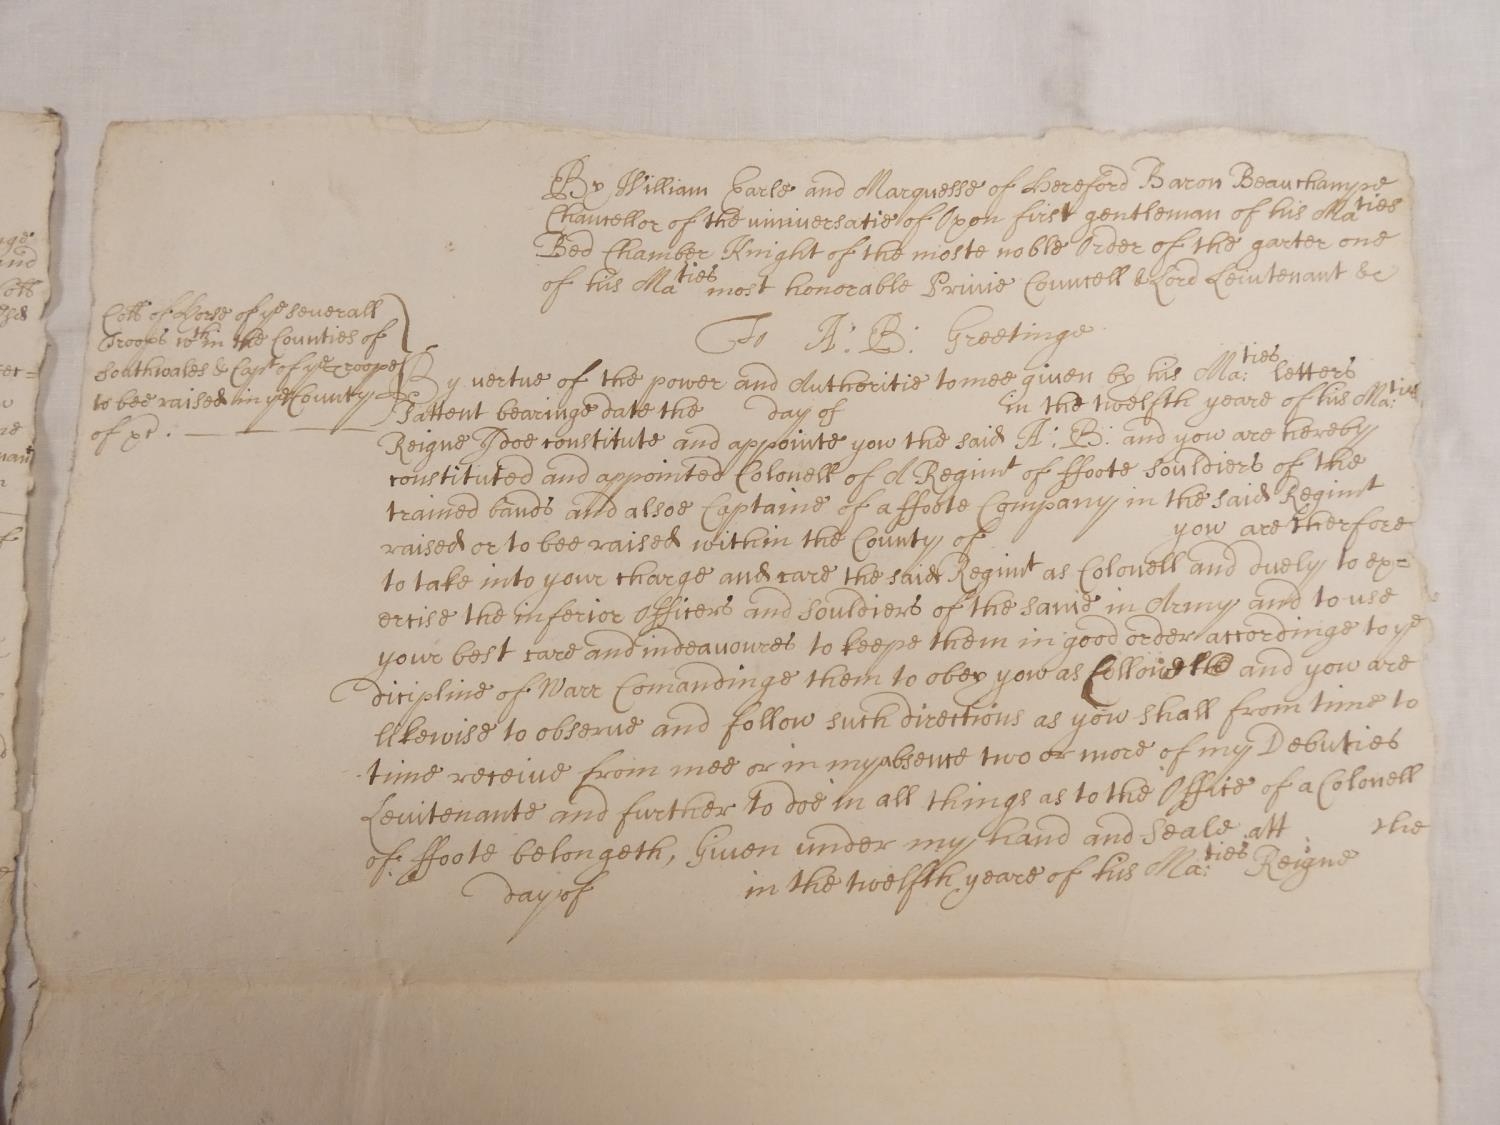 By William Earle and Marquesse of Hereford Baron Beauchampe
Chancellor of the universatie of Oxon first gentleman of his Maties
Bed Chamber Knight of the moste noble Order of the garter one
of his Maties most honorable Privie Councell & Lord Leiutenant &c
To A: B: Greetinge
Coll of Horse of ye severall
Troops wthin the Counties of
Southwales & Capt of ye Troope
to bee raised in ye County
of
By vertue of the power and Authoritie to mee given by his Ma:ties Letters
Pattent bearinge date the day of in the twelfth yeare of his Ma:ties
Reigne I doe constitute and appointe you the said A: B: and you are hereby
constituted and appointed Colonell of A Regimt of ffoote Souldiers of the
trained bands and alsoe Captaine of a ffoote Company in the said Regimt
raised or to bee raised within the County of you are therfore
to take into your charge and care the said Regimt as Colonell and duely to ex=
ercise the inferior Officers and Souldiers of the same in Army and to use
your best care and indeavoures to keepe them in good order accordinge to ye
dicipline of Warr Comandinge them to obey you as Collonell and you are
likewise to observe and follow such directions as you shall from time to
time receive from mee or in my absence two or more of my Debuties
Leuitenante and further to doe in all things as to the Office of a Colonell
of ffoote belongeth, Given under my hand and Seale att the
day of in the twelfth yeare of his Ma:ties Reigne